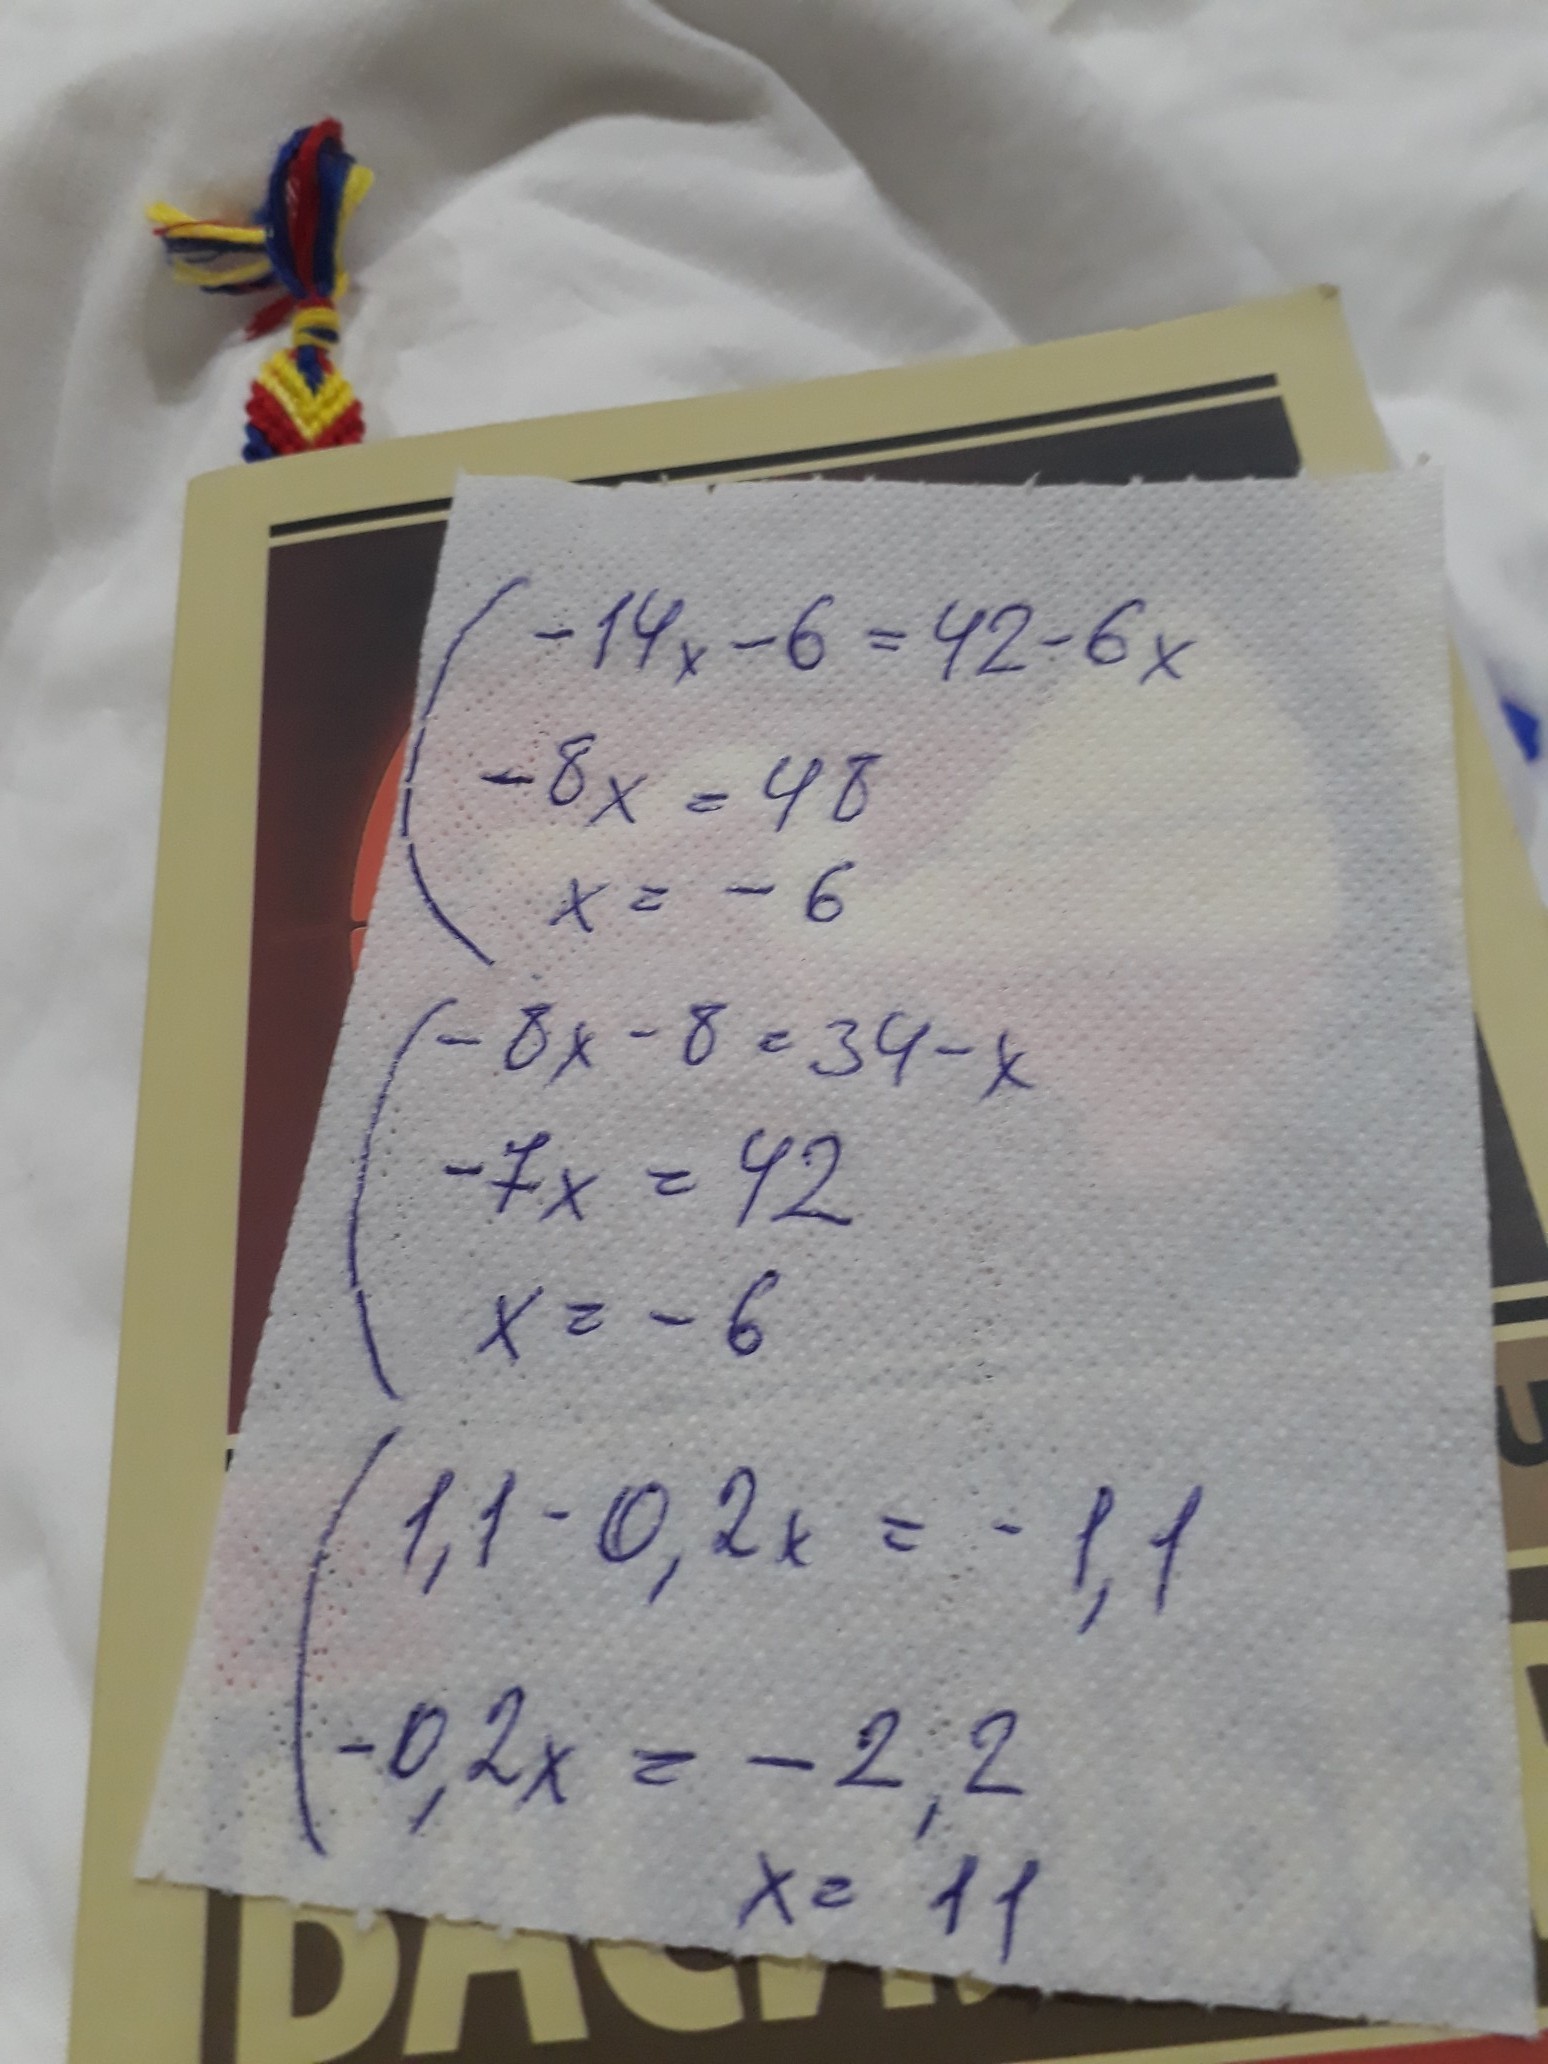 -14x - 6 = 42 - 6x
-8x = 48
x = - 6
-8x - 8 = 34 - x
-7x = 42
x = - 6
1,1 - 0,2x = - 1,1
-0,2x = - 2,2
x = 11